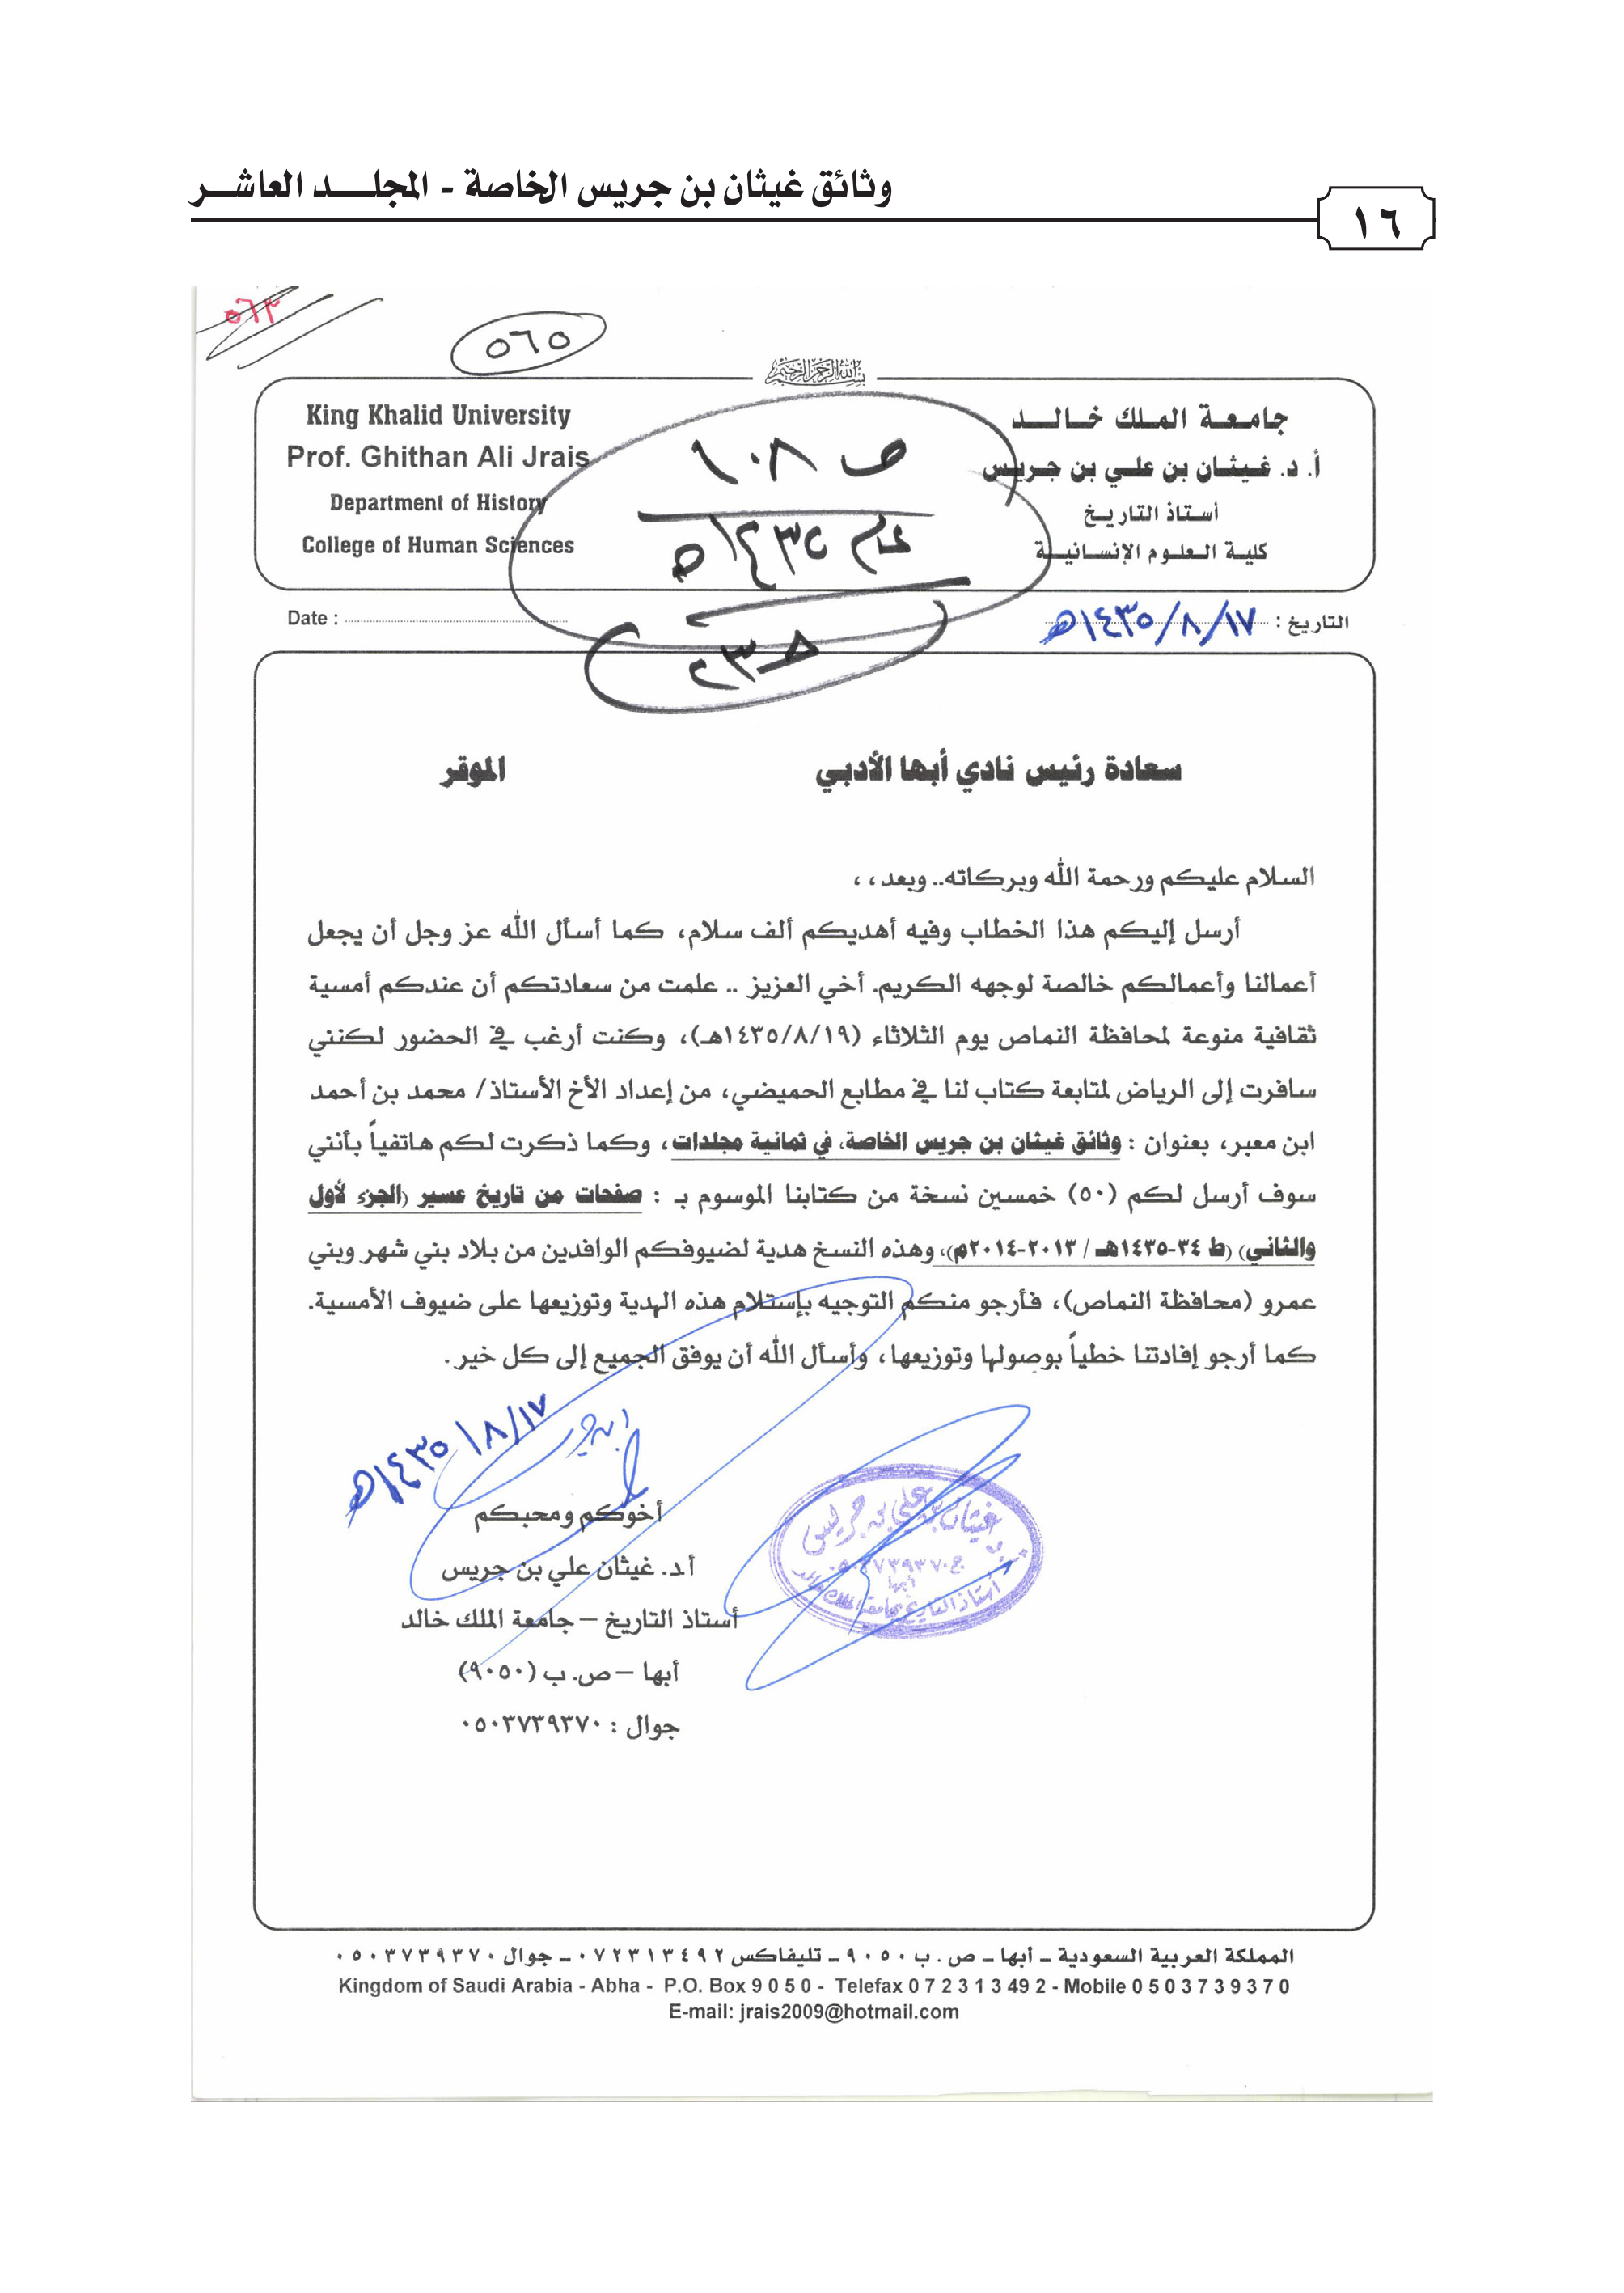 وثائق غيثان بن جريس الخاصة - المجلـــد العاشـــر
١٦
٥٦٣
٥٦٥
بسم الله الرحمن الرحيم
King Khalid University
Prof. Ghithan Ali Jrais
Department of History
College of Human Sciences
جامعـة الملك خـالـــد
أ. د. غيـثـان بن علـي بن جريس
أستـاذ التاريـخ
كليـة العلـوم الإنسـانيـة
ص ١٠٨
عام ١٤٣٥هـ
Date :
التاريخ : ١٤٣٥/٨/١٧هـ
سعادة رئيس نادي أبها الأدبي الموقر
السلام عليكم ورحمة الله وبركاته.. وبعد،،
أرسل إليكم هذا الخطاب وفيه أهديكم ألف سلام، كما أسأل الله عز وجل أن يجعل
أعمالنا وأعمالكم خالصة لوجهه الكريم. أخي العزيز .. علمت من سعادتكم أن عندكم أمسية
ثقافية منوعة لمحافظة النماص يوم الثلاثاء (١٤٣٥/٨/١٩هـ)، وكنت أرغب في الحضور لكنني
سافرت إلى الرياض لمتابعة كتاب لنا في مطابع الحميضي، من إعداد الأخ الأستاذ/ محمد بن أحمد
ابن معبر، بعنوان : وثائق غيثان بن جريس الخاصة، في ثمانية مجلدات، وكما ذكرت لكم هاتفياً بأنني
سوف أرسل لكم (٥٠) خمسين نسخة من كتابنا الموسوم بـ : صفحات من تاريخ عسير (الجزء لأول
والثاني) (ط ٣٤-١٤٣٥هـ / ٢٠١٣-٢٠١٤م)، وهذه النسخ هدية لضيوفكم الوافدين من بلاد بني شهر وبني
عمرو (محافظة النماص)، فأرجو منكم التوجيه بإستلام هذه الهدية وتوزيعها على ضيوف الأمسية.
كما أرجو إفادتنا خطياً بوصولها وتوزيعها، وأسأل الله أن يوفق الجميع إلى كل خير.
١٤٣٥/٨/١٧هـ
أخوكم ومحبكم
أ.د. غيثان علي بن جريس
أستاذ التاريخ – جامعة الملك خالد
أبها – ص. ب (٩٠٥٠)
جوال : ٠٥٠٣٧٣٩٣٧٠
أ.د. غيثان بن علي بن جريس
ج ٠٥٠٣٧٣٩٣٧٠
أبها
أستاذ التاريخ بجامعة الملك خالد
المملكة العربية السعودية ـ أبها ـ ص . ب ٩٠٥٠ ـ تليفاكس ٠٧٢٣١٣٤٩٢ ـ جوال ٠٥٠٣٧٣٩٣٧٠
Kingdom of Saudi Arabia - Abha - P.O. Box 9 0 5 0 - Telefax 0 7 2 3 1 3 49 2 - Mobile 0 5 0 3 7 3 9 3 7 0
E-mail: jrais2009@hotmail.com